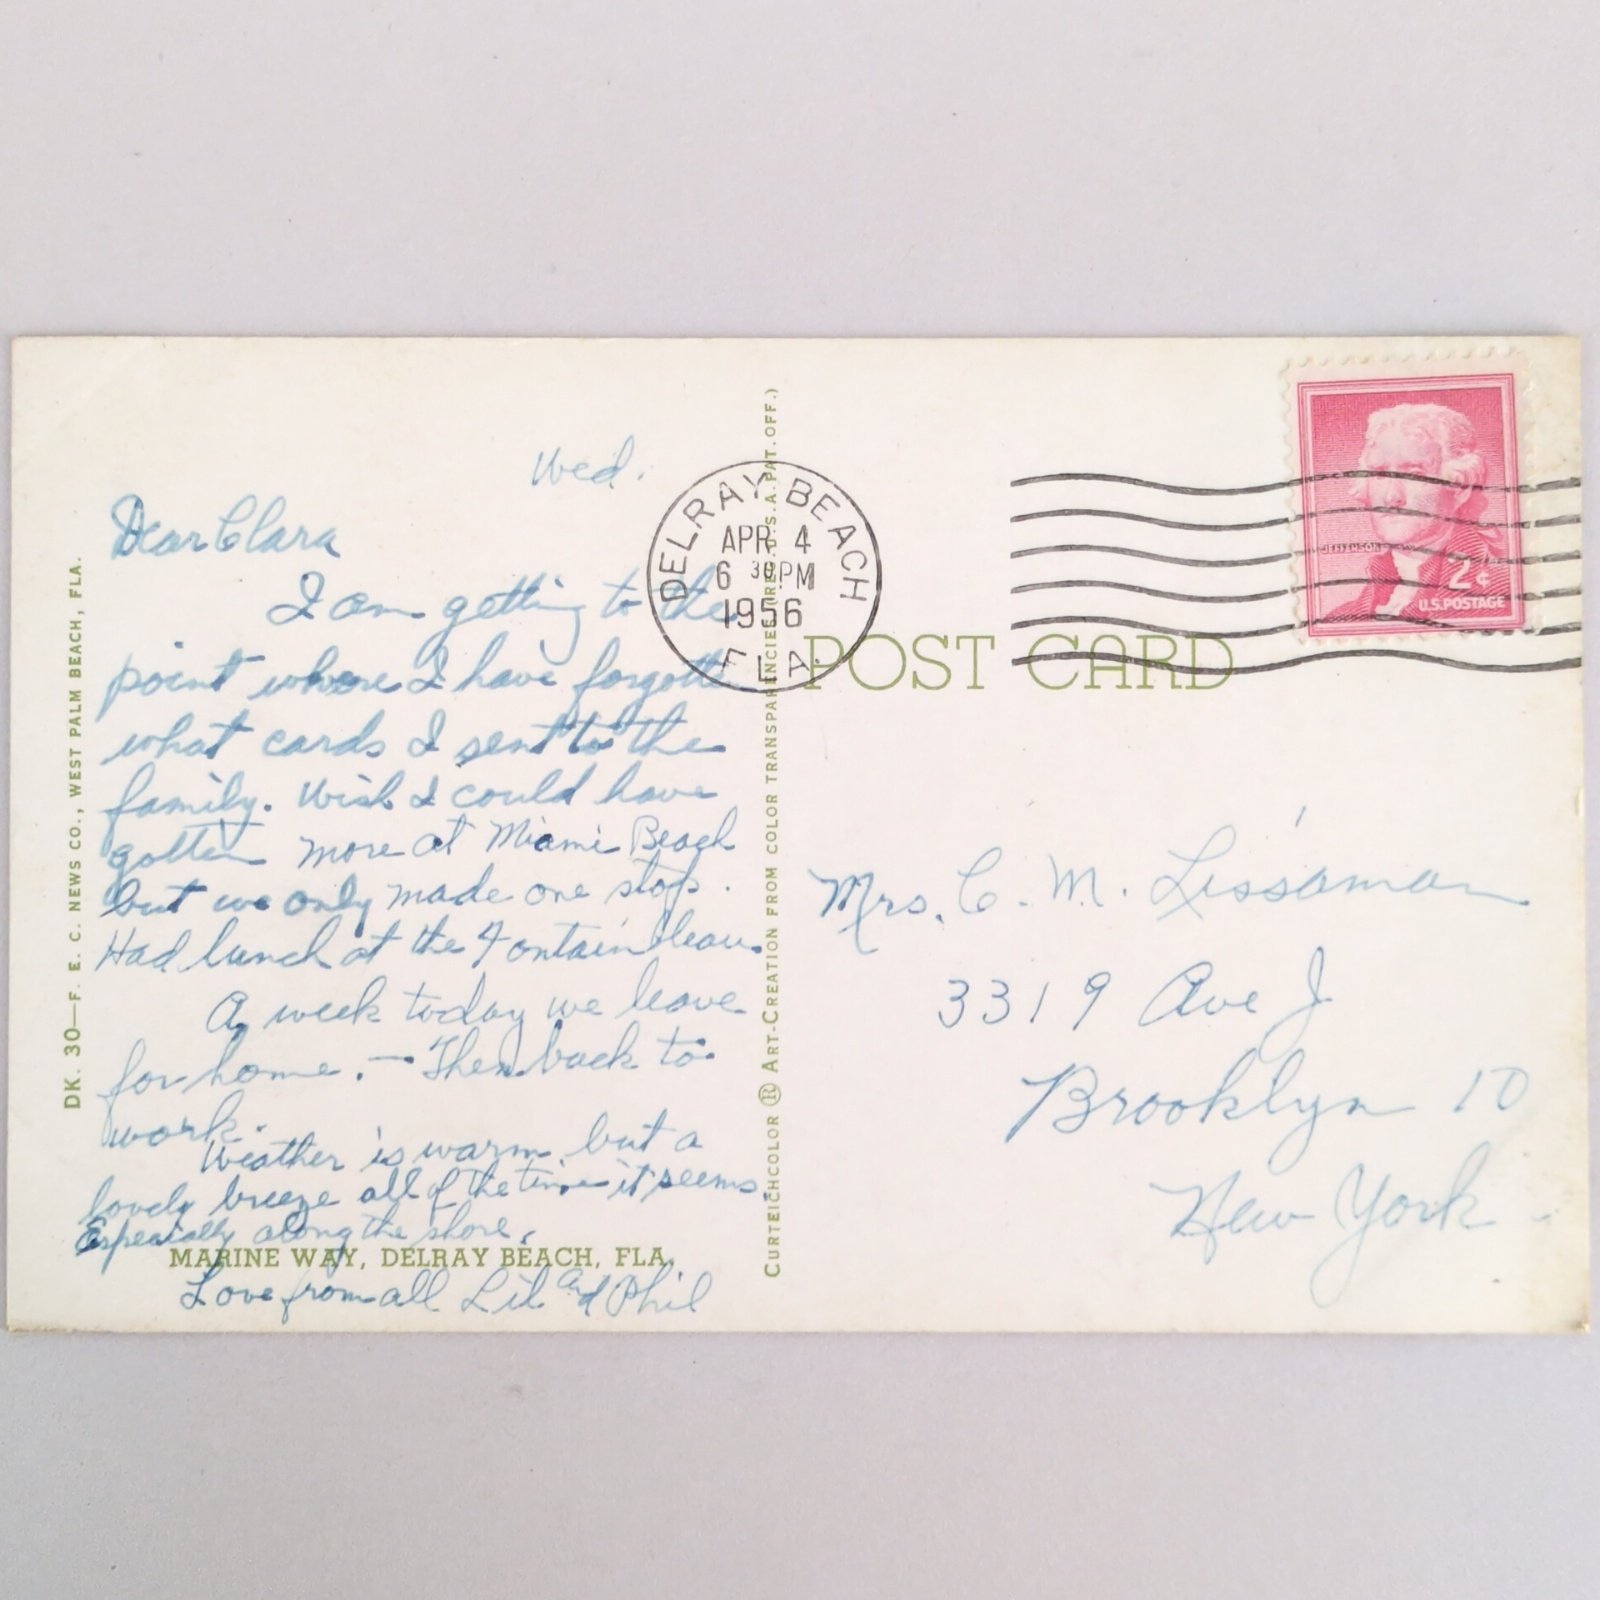 Wed.
Dear Clara
I am getting to the
point where I have forgotten
what cards I sent to the
family. Wish I could have
gotten more at Miami Beach
but we only made one stop.
Had lunch at the Fontainbleau.
A week today we leave
for home. — Then back to
work.
Weather is warm but a
lovely breeze all of the time it seems.
Especially along the shore.
Love from all Lil and Phil
MARINE WAY, DELRAY BEACH, FLA.
DK. 30—F. E. C. NEWS CO., WEST PALM BEACH, FLA.
CURTEICHCOLOR ® ART-CREATION FROM COLOR TRANSPARENCIES (REG. U.S.A. PAT. OFF.)
DELRAY BEACH
APR 4
6 30 PM
1956
FLA.
POST CARD
JEFFERSON
2¢
U.S. POSTAGE
Mrs. C. M. Lissaman
3319 Ave J
Brooklyn 10
New York